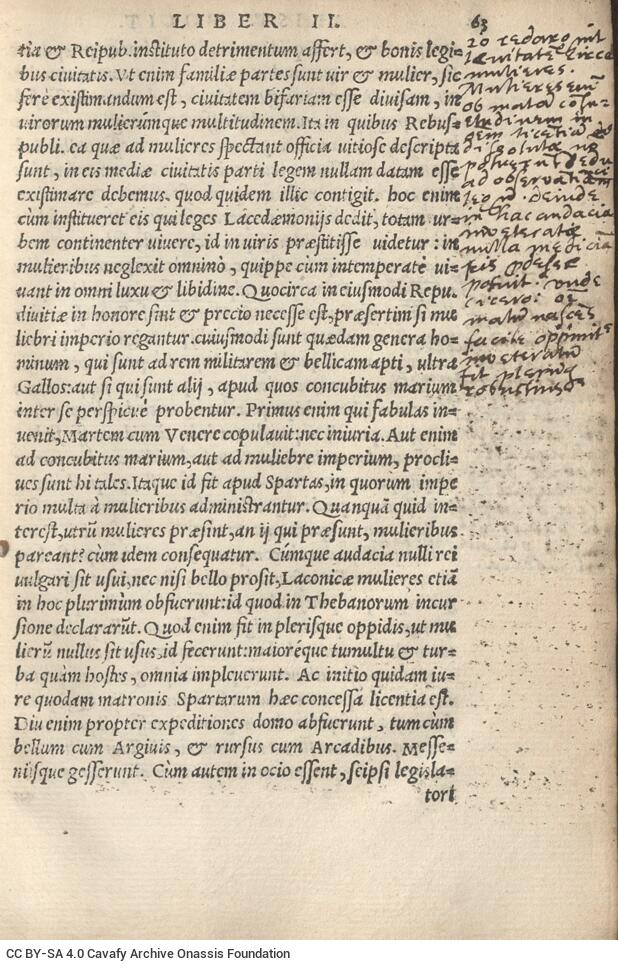 LIBER II.
63
tia & Reipub. instituto detrimentum affert, & bonis legi=
bus ciuitatis. Vt enim familiæ partes sunt uir & mulier, sic
ferè existimandum est, ciuitatem bifariam esse diuisam, in
uirorum mulierúmque multitudinem. Ita in quibus Rebus=
publi. ea quæ ad mulieres spectant officia uitiose descripta
sunt, in eis mediæ ciuitatis parti legem nullam datam esse
existimare debemus. quod quidem illic contigit. hoc enim
cùm institueret eis qui leges Lacedæmonijs dedit, totam ur=
bem continenter uiuere, id in uiris præstitisse uidetur: in
mulieribus neglexit omninò, quippe cùm intemperatè ui=
uant in omni luxu & libidine. Quocirca in eiusmodi Repu.
diuitiæ in honore sint & precio necesse est, præsertim si mu
liebri imperio regantur. cuiusmodi sunt quædam genera ho=
minum, qui sunt ad rem militarem & bellicam apti, ultra
Gallos: aut si qui sunt alij, apud quos concubitus marium
inter se perspicuè probentur. Primus enim qui fabulas in=
uenit, Martem cum Venere copulauit: nec iniuria. Aut enim
ad concubitus marium, aut ad muliebre imperium, procli=
ues sunt hi tales. Itaque id fit apud Spartas, in quorum impe
rio multa à mulieribus administrantur. Quanquā quid in=
terest, utrū mulieres præsint, an ij qui præsunt, mulieribus
pareant? cùm idem consequatur. Cúmque audacia nulli rei
uulgari sit usui, nec nisi bello prosit, Laconicæ mulieres etiā
in hoc plurimùm obfuerunt: id quod in Thebanorum incur
sione declararūt. Quod enim fit in plerisque oppidis, ut mu
lierū nullus sit usus, id fecerunt: maioréque tumultu & tur=
ba quàm hostes, omnia impleuerunt. Ac initio quidam iu=
re quodam matronis Spartarum hæc concessa licentia est.
Diu enim propter expeditiones domo abfuerunt, tum cùm
bellum cum Argiuis, & rursus cum Arcadibus. Messe=
nijsque gesserunt. Cùm autem in ocio essent, seipsi legisla=
tori
mulieres.
ob malā
ad obseruātiam
deinde
in hac audacia
nulla medicina
potuit. unde
cicero: oē
malū nascēs
facile opprimitur
fit plerūq
robustius
CC BY-SA 4.0 Cavafy Archive Onassis Foundation